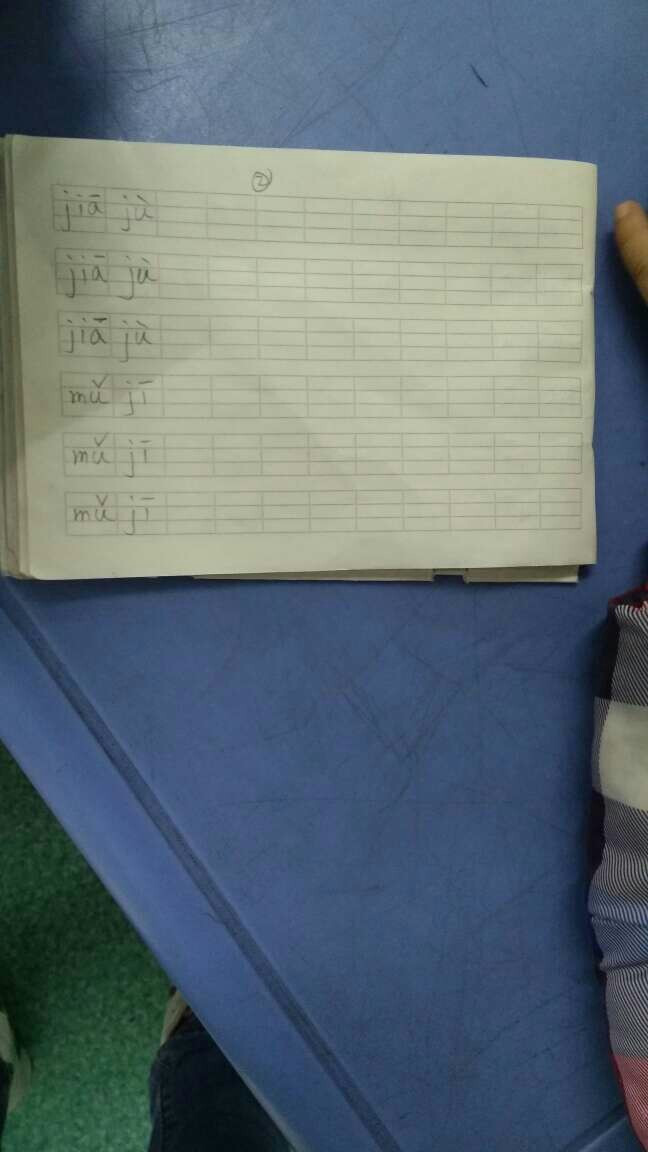 ②
jiā jù
jiā jù
jiā jù
mǔ jī
mǔ jī
mǔ jī